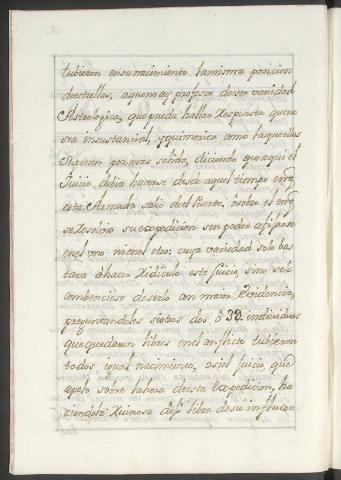 tubieron en su nacimiento la misma posicion
de estrellas, a que no ay profesor de esta vanidad
Astrologica, que pueda hallar respuesta que no
sea insustancial, y quimerica como la que ellos
suponen por mas solida, diciendo que aqui el
Juicio debia hacerse desde aquel tiempo en q.
esta Armada salio del Puerto, ò sobre el en q.
se resolvio su expedicion sin poder afijarse
en el uno ni en el otro: cuya variedad solo bas
tara à hacer ridiculo este juicio, sino se le
combenciese de serlo con maior evidencia,
preguntandoles si otros dos ò 532 individuos
que quedaron libres en el conflicto tubieron
todos igual nacimiento, ò si el juicio, que
apelo sobre la hora de esta expedicion, ha
ciendola ruinosa dejo libre de su influxo